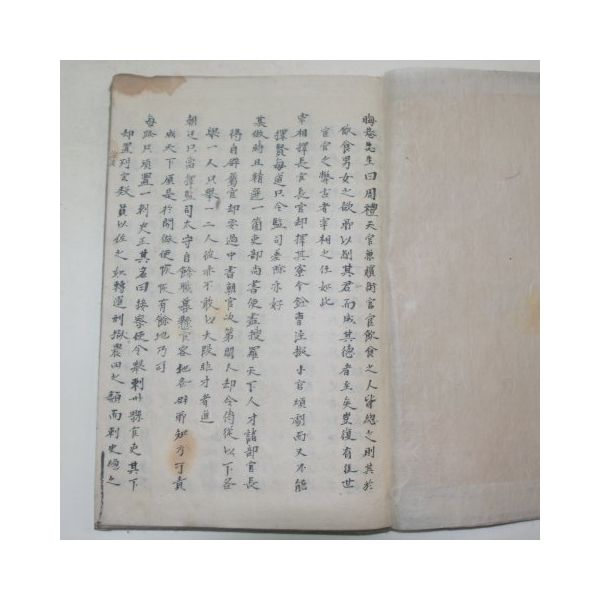 晦菴先生曰周禮天官兼嬪御宦官飮食之人皆總之則其於
飮食男女之欲所以制其君而成其德者至矣豈復有後世
宦官之弊古者宰相之任如此
宰相擇長官長官却擇其寮今銓曹注擬小官煩劇而又不能
擇賢每道只令監司差除亦好
某做時且精選一箇吏部尚書便盡搜羅天下人才諸部官長
得自辟屬官却要過中書朝官次第闕人却令侍從以下各
舉一人只舉一二人彼亦不敢以大段非才者進
朝廷只當擇監司太守自餘職幕縣官容他各辟所知方可責
成天下須是放開做使恢恢有餘地乃可
每路只須置一刺史正其名曰按察使令擧刺州縣官吏其下
却置判官數員以佐之如轉運刑獄農田之類而刺史總之